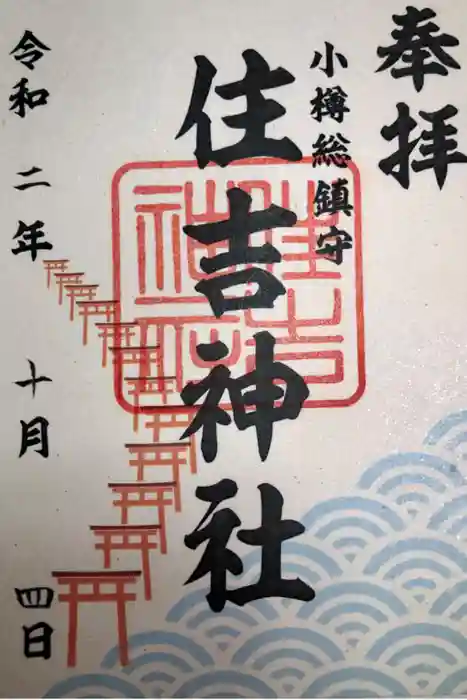 奉拝
小樽総鎮守
住吉神社
令和二年十月四日